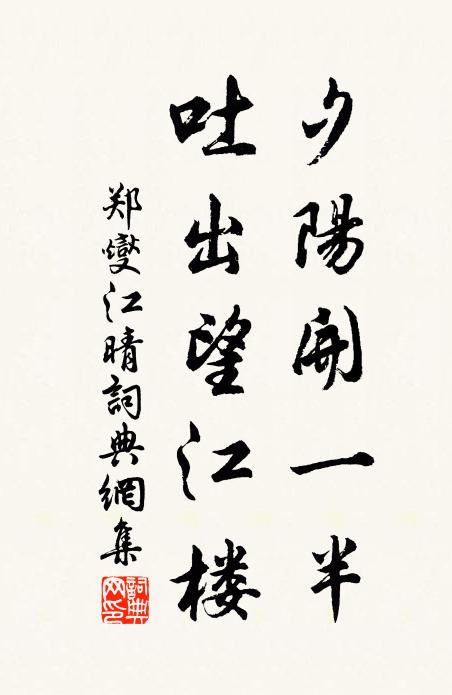 夕陽開一半
吐出望江楼
郑燮江晴詞典網集
詞典网印